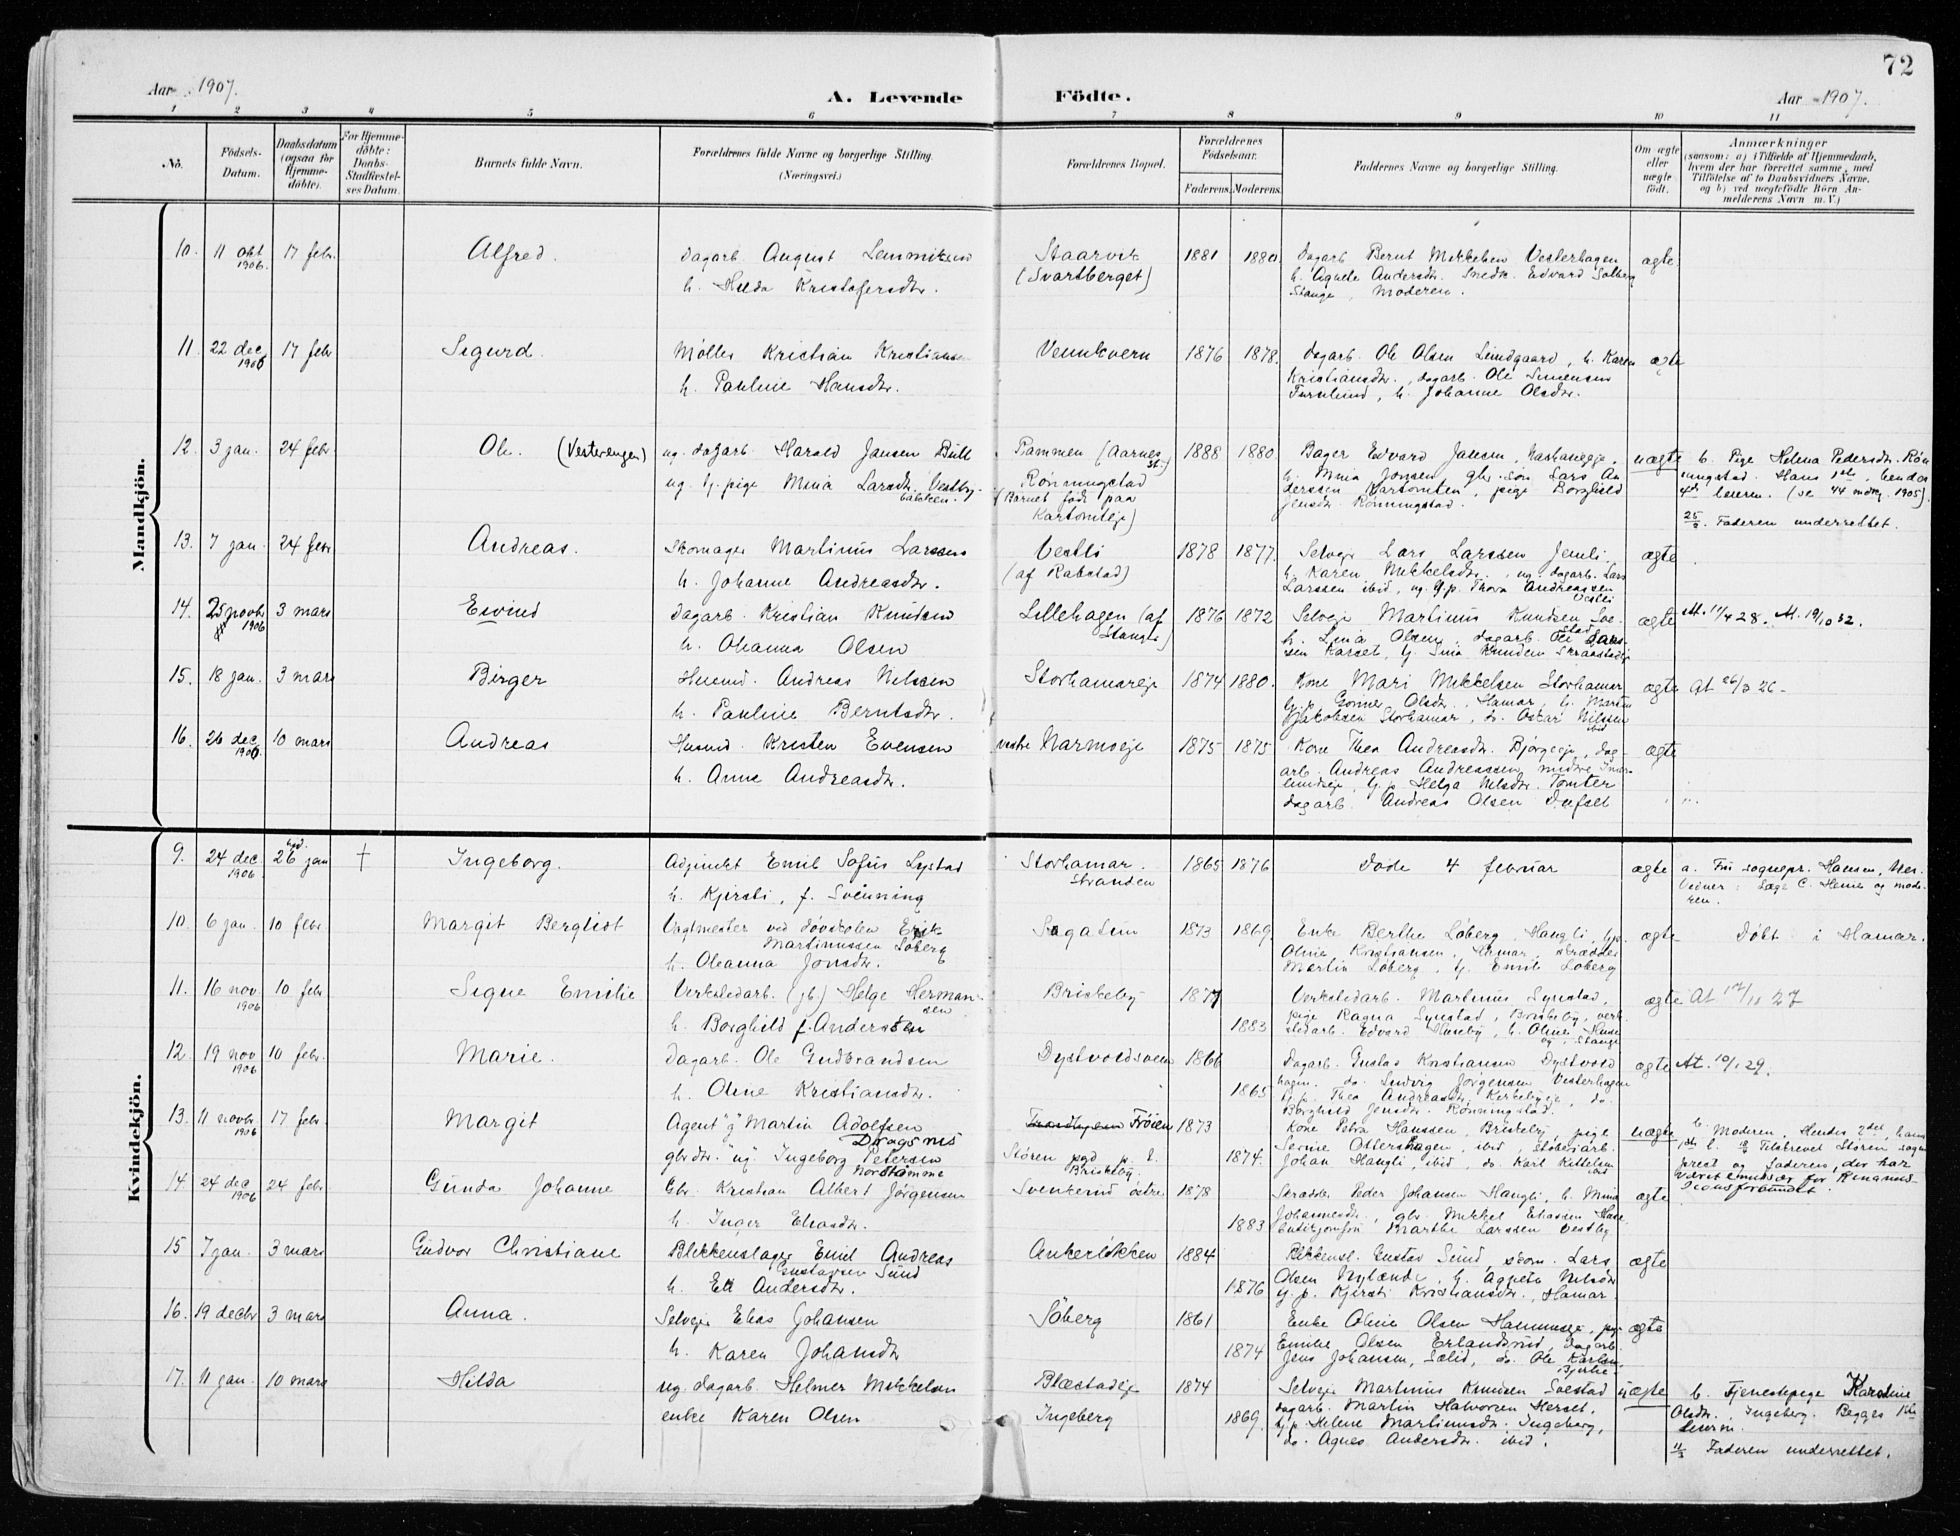 72
Aar 1907.
A. Levende Födte.
Aar 1907.
1 2 3 4 5 6 7 8 9 10 11
No. Födsels-Datum. Daabsdatum (ogsaa for Hjemmedöbte). For Hjemmedöbte: Daabs-Stadfæstelses Datum. Barnets fulde Navn. Forældrenes fulde Navne og borgerlige Stilling. (Næringsvei.) Forældrenes Bopæl. Forældrenes Födselsaar. Faderens. Moderens. Faddernes Navne og borgerlige Stilling. Om ægte eller uægte födt. Anmærkninger (saasom: a) i Tilfælde af Hjemmedaab, hvem der har forrettet samme, med Tilföielse af to Daabsvidners Navne, og b) ved uægtefödte Börn Anmelderens Navn m.V.)
Mandkjön.
10. 11 okt 1906. 17 febr. Alfred. Dagarb. August
h. Hilda Kristofersdtr. Staarvik (Svartberget) 1881 1880
Dagarb. Bernt Mikkelsen Vesterhagen
h. Agnete Andersdtr. Snedk. Edvard Solberg
Stange, Moderen. ægte
11. 22 dec 1906 17 febr Sigurd. Møller Kristian Kristiansen
h. Pauline Hansdtr. Vennkvern 1876 1878.
Dagarb. Ole Olsen Lundgaard, h. Karen
Kristiansdtr., dagarb. Ole Simensen
Furulund, h. Johanne Olsdtr. ægte
12. 3 jan. 24 febr. Ole. (Vesterengen) ug. dagarb. Harald Jansen Bull
ug. tj. pige Mina Larsdtr. Vestbybakken. Pammen (Aarnes st.)
Rønningstad
(Barnet født paa
Kartomteje) 1888 1880
Bager Edvard Jansen,
h. Mina Jonsen, gbr. søn Lars Anderssen
Kartomten, pige Borghild
Jensdtr. Rønningstad. uægte
b. Pige Helena Pedersdtr. Rønningstad. Hans 1ste, hendes
4de leierm. (se 44 mdkj. 1905).
25/2. Faderen underrettet.
13. 7 jan. 24 febr Andreas. Skomager Martinus Larssen
h. Johanne Andreasdtr. Vestli
(af Rabstad) 1878 1877.
Selvejer Lars Larssen Jemli,
h. Karen Mikkelsdtr., ug. dagarb. Lars
Larssen ibid, ug. tj.p. Thora Andreassen
Vestli ægte
14. 25 novbr 1906 3 mars Eivind Dagarb. Kristian Knudsen
h. Oleanna Olsen Lillehagen (af
Stangli) 1876 1872
Selvejer Martinus Knudsen Soestad
h. Lina Olsen, dagarb. Ole Larssen
Karset, tj. Sina Knudsen Skraastadeje ægte
At. 11/4 28. At. 19/10 32.
15. 18 jan. 3 mars Birger Husmd. Andreas Nilssen
h. Pauline Berntsdtr. Storhamareje 1874 1880.
Kone Mari Mikkelsen Storhamar
tj.p. Gonner Olsdtr. Hamar, tj. Martin
Jakobsen Storhamar, do. Oskar Nilssen
ibid ægte At 26/3 26-
16. 26 dec 1906 10 mars Andreas Husmd. Kristen Evensen
h. Anne Andreasdtr. vestre Narmoeje 1875 1875
Kone Thea Andreasdtr. Bjørgeeje, dagarb.
Andreas Andreassen nedre
tj.p. Helga Nilsdtr. Tomter
dagarb. Andreas Olsen Dufset ægte
Kvindekjön.
9. 24 dec 1906. hjd. 26 jan † Ingeborg. Adjunkt Emil Sofus Lystad
h. Kjersti, f. Svenning Storhamar.
Stranden 1865 1876
Døde 4 februar ægte
a. Fru sogneprs. Hansen, Vidner: Læge C. Hansen og moderen.
10. 6 jan. 10 febr. Margit Berglist Vagtmester ved døvskolen Erik
Martinussen Løberg
h. Oleanna Jonsdtr. Sagatun 1873 1869.
Enke Berthe Løberg, Hangli, tj.p.
Oline Kristiansen, Hamar, skrædder
Martin Løberg, tj. Emil Løberg ægte
Døbt i Hamar.
11. 16 nov. 1906 10 febr Signe Emilie Verkstedarb. (jb) Helge Hermansen
h. Borghild f. Anderssen Briskeby 1877 1883
Verkstedarb. Martinus Synstad,
pige Ragna Synstad, Briskeby, verkstedarb.
Edvard Huseby, h. Oline Huseby,
Stange ægte At 12/11 27
12. 19 nov 1906 10 febr. Marie. Dagarb. Ole Gudbrandsen
h. Oline Kristiansdtr. Dystvoldsveen 1866 1865
Dagarb. Gustav Kristiansen Dystvoldhagen,
do. Ludvig Jørgensen Vesterhagen
tj.p. Thea Andreasdtr. Kirkebyeje, do.
Borghild Jensdtr. Rønningstad. ægte At. 10/1 29.
13. 11 novbr. 1906 17 febr. Margit Agent "g" Martin Adolfsen
Dragsnis
gbrdtr. "ug" Ingeborg Petersen
Norstømme Frøien
Støren pgd p. t.
Briskeby. 1873 1874.
Kone Petra Hanssen, Briskeby, pige
Signe Ottershagen, ibid, støberiarb.
Johan Hangli, ibid, do. Karl Kittelsen
ibid uægte
b. Moderen. Hendes 2det, hans
1ste l. Tilskrevet Støren sogneprest
og Faderen, der har
været emissær for Kinamissionsforbundet.
14. 24 dec. 1906 24 febr. Gunda Johanne Gbr. Kristian Albert Jørgensen
h. Inger Eliasdtr. Svenkerud østre 1878 1883
Skrædder Peder Johansen Hangli, h. Mina
Johannesdtr, gbr. Mikkel Eliassen
Marthe Larssen Vestby ægte
15 7 jan. 3 mars Gudvor Christiane Blikkenslager Emil Andreas
Gustavsen Sund
h. Eli Andersdtr. Ankerløkken 1884 1876
Blikkensl. Gustav Sund, skom. Lars
Olsen Nylænde, h. Agnete Nilsdtr
tj.p. Kjersti Kristiansdtr., Hamar. ægte
16. 19 decbr 3 mars Anna. Selvejer Elias Johansen
h. Karen Johansdtr Söberg 1861 1874
Enke Oline Olsen Hammeseje, pige
Emilie Olsen Erlandsrud, Dagarb.
Jens Johansen, Sælid, do. Ole Karlsen,
Gjerlu ægte
17. 11 jan. 10 mars Hilda ug. dagarb. Helmer Mikkelsen
enke Karen Olsen Blæstadeje
Ingeberg 1874 1869.
Selvejer Martinus Knudsen Soestad
dagarb. Martin Halvorsen Herset,
tj.p. Helene Martinusdtr. Ingeberg,
do. Agnes Andersdtr. ibid. uægte
b. Tjenestepige Karoline
Olsdtr., Ingeberg. Begges 1ste
leierm.
11/3 Faderen underrettet.